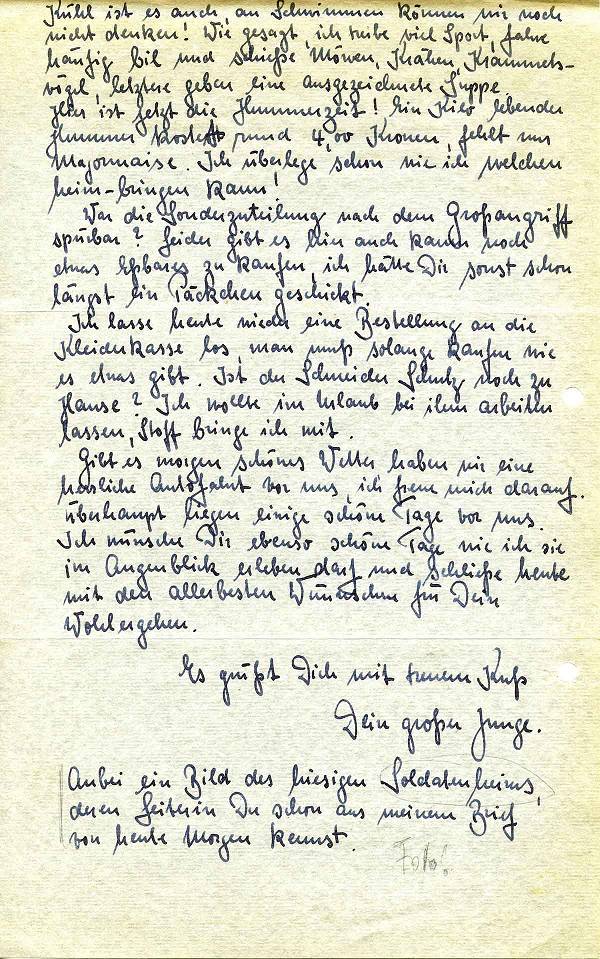 Kühl ist es auch, an Schwimmen können wir noch
nicht denken! Wie gesagt, ich treibe viel Sport, fahre
häufig und schieße Möwen, Krähen, Krammets-
vögel, letztere geben eine ausgezeichnete Suppe.
Hier ist jetzt die Hummerzeit! Ein Kilo lebender
Hummer kostet rund 4,00 Kronen, fehlt nur
Majonnaise. Ich überlege schon wie ich welchen
heim-bringen kann!
War die Sonderzuteilung nach dem Großangriff
spürbar? Leider gibt es hier auch kaum noch
etwas Eßbares zu kaufen, ich hätte Dir sonst schon
längst ein Päckchen geschickt.
Ich lasse heute wieder eine Bestellung an die
Kleiderkasse los, man muß solange kaufen wie
es etwas gibt. Ist der Schneider Schutz noch zu
Hause? Ich wollte im Urlaub bei ihm arbeiten
lassen, Stoff bringe ich mit.
Gibt es morgen schönes Wetter haben wir eine
herrliche Autofahrt vor uns, ich freue mich darauf.
Überhaupt liegen einige schöne Tage vor uns.
Ich wünsche Dir ebenso schöne Tage wie ich sie
im Augenblick erleben darf und schließe heute
mit den allerbesten Wünschen für Dein
Wohlergehen.
Es grüßt Dich mit treuem Kuß
Dein großer Junge.
Anbei ein Bild des hiesigen Soldatenheims,
deren Leiterin Du schon aus meinem Brief
von heute Morgen kennst.
Foto!